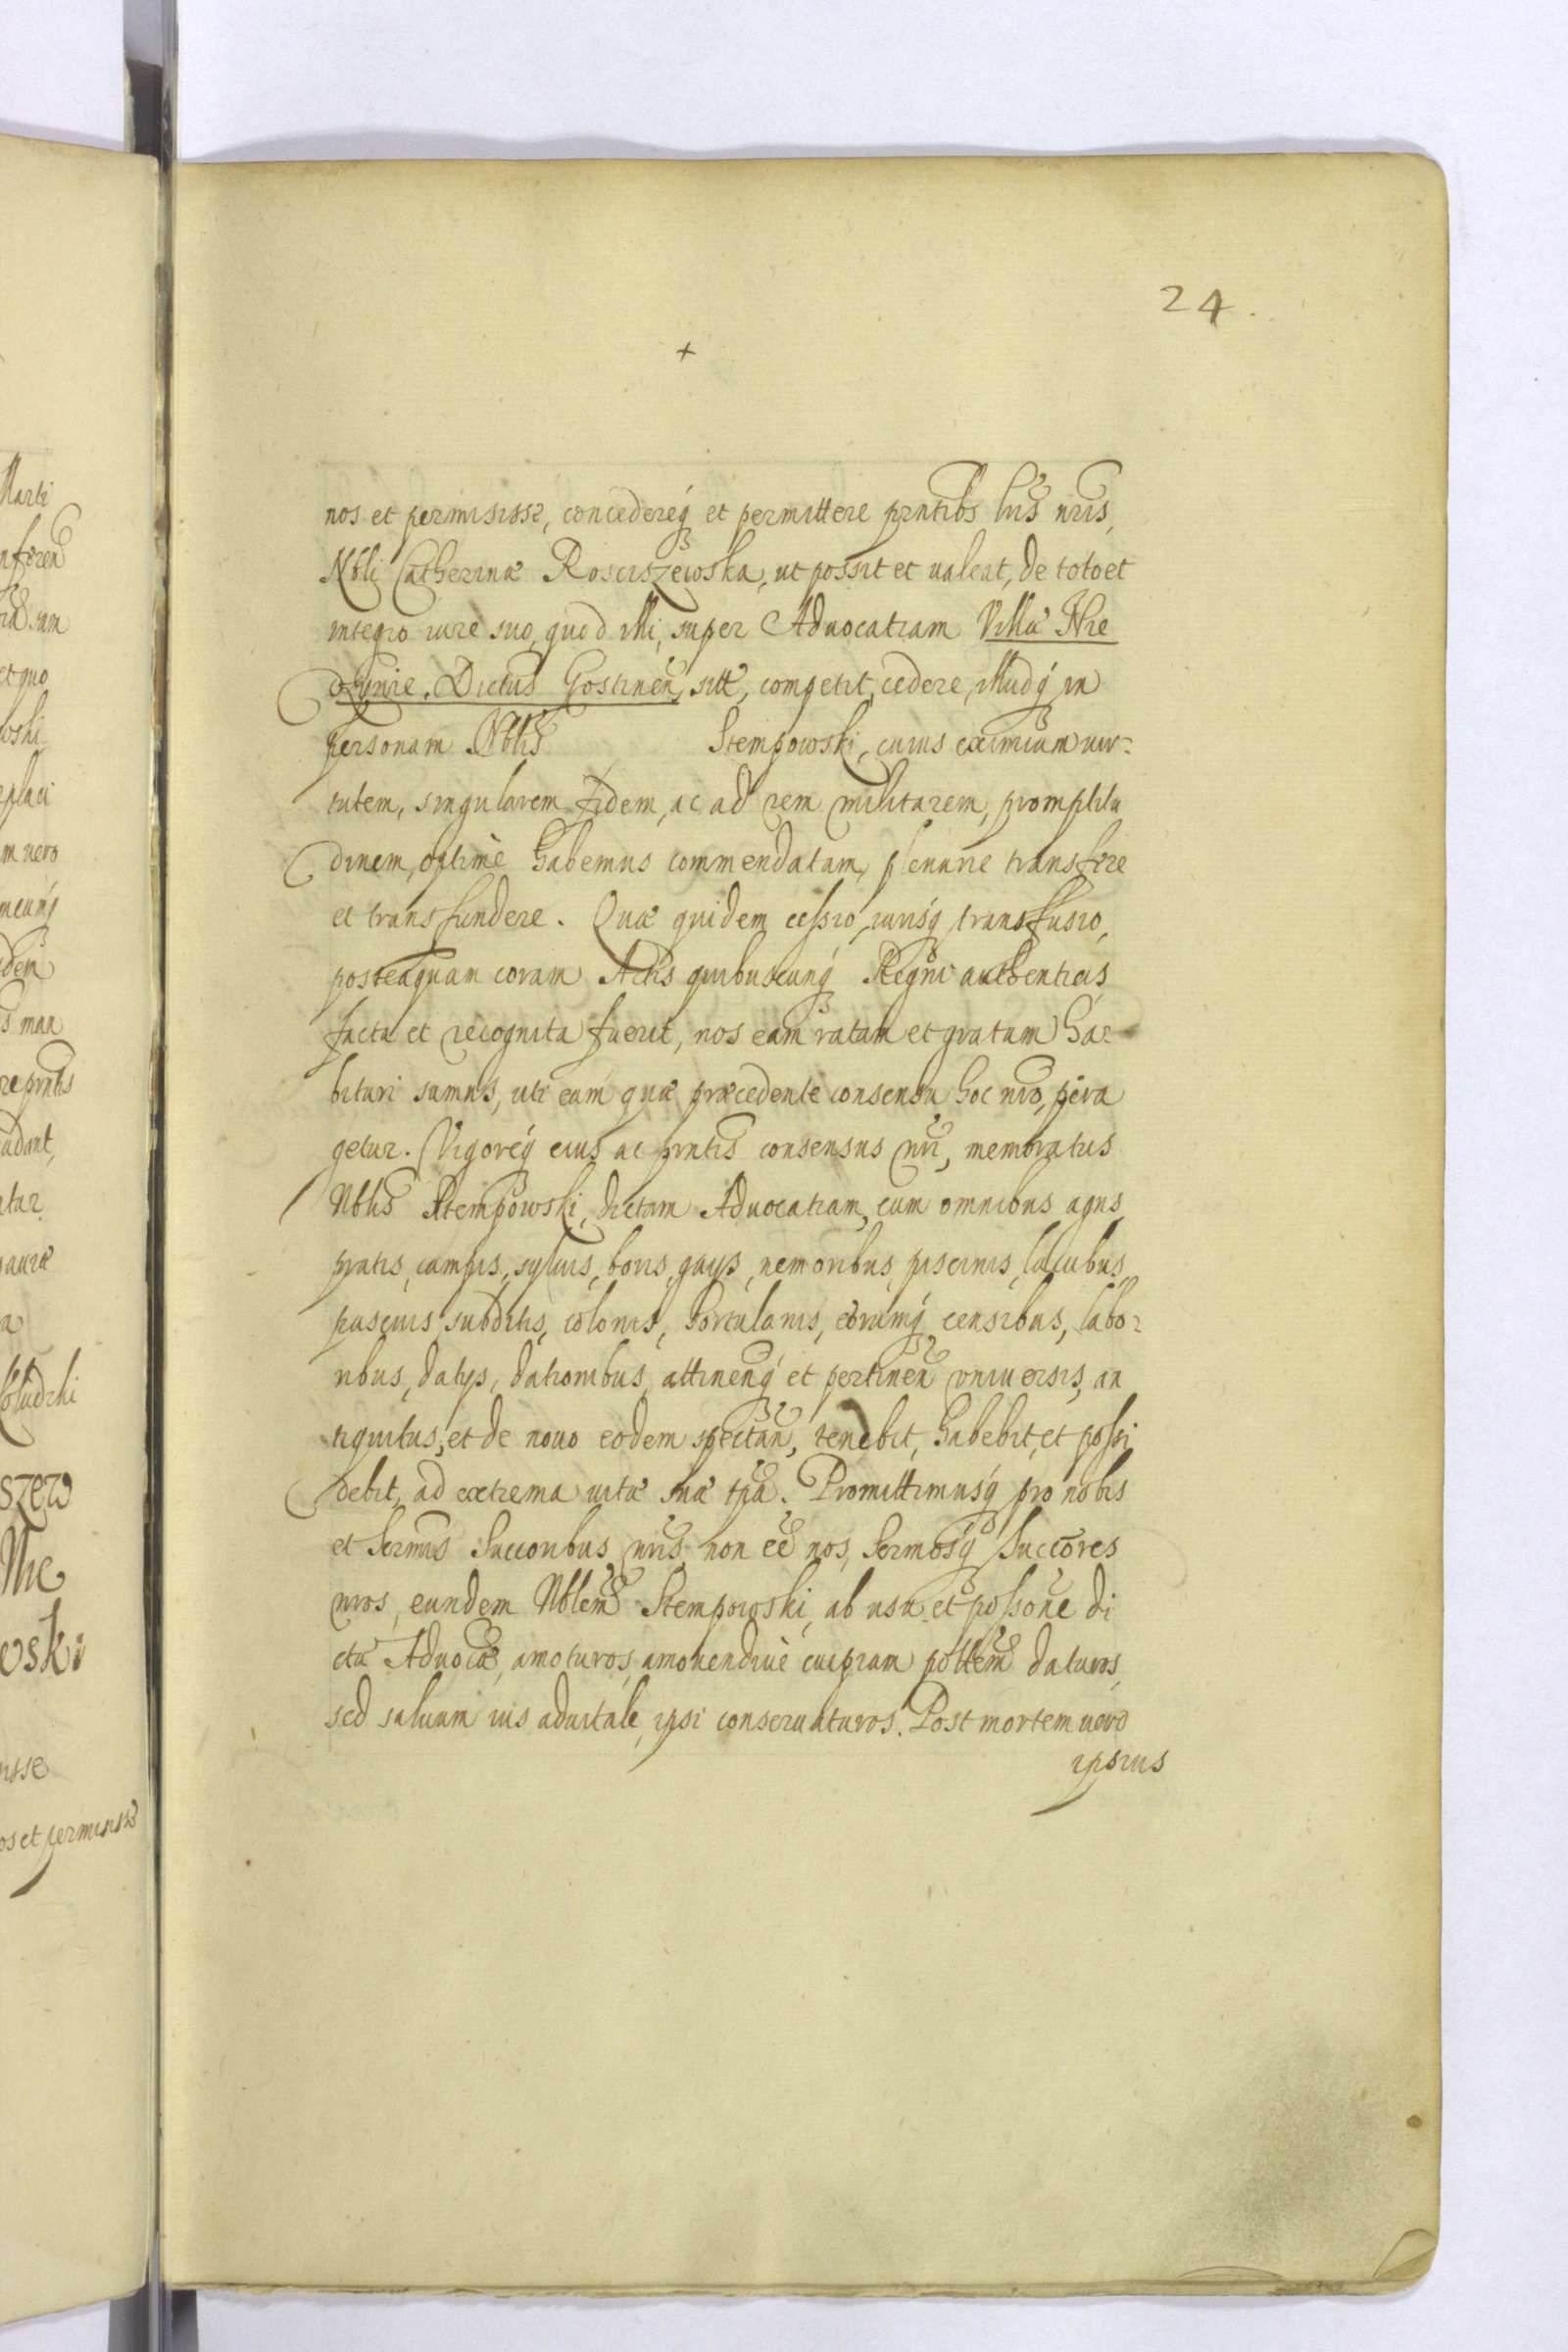 24.
+
nos et permisisse, concedereq́ et permittere pñtibs lris nr̃is,
Nbli Catherinæ Rosciszewska, ut possit et ualeat, de toto et
integro iure suo, quod illi, super Aduocatiam Villæ
Dictus Gostinen̄, sitæ, competit, cedere, illudq́ in
personam Nblis Stempowski, cuius eximiam uir-
tutem, singularem fidem, ac ad rem militarem, promptitu
dinem, optimè habemus commendatam, plenarie transfere
et transfundere. Quæ quidem cessio, iurisq́ transfusio,
posteaquam coram Actis quibuscunq́ Regni authenticis
facta et recognita fuerit, nos eam ratam et gratam ha-
bituri sumus, uti eam quæ præcedente consensu hoc nr̃o, pera
getur. Vigoreq́ eius ac pñtis consensus nr̃i, memoratus
Nblis Stempowski, dictam Aduocatiam, cum omnibus agris
pratis, campis, syluis, boris, gays, nemoribus, piscinis, lacubus,
pascuis subditis, colonis, hortulanis, eorumq́ censibus, labo-
ribus, datys, dationibus, attinenq́ et pertinen̄ vniuersis, an
tiquitus, et de nouo eodem spectan̄, tenebit, habebit, et possi
debit, ad extrema uitæ suæ tp̃a. Promittimusq́ pro nobis
et Sermis Succoribus nr̃is, non eē nos, Sermosq́ Succores
nr̃os, eundem Nblem Stempowski, ab usu et possone di
ctæ Aduocæ, amoturos, amouendiuè cuipiam potttem daturos,
sed saluum ius aduitale, ipsi conseruaturos. Post mortem uero
ipsius